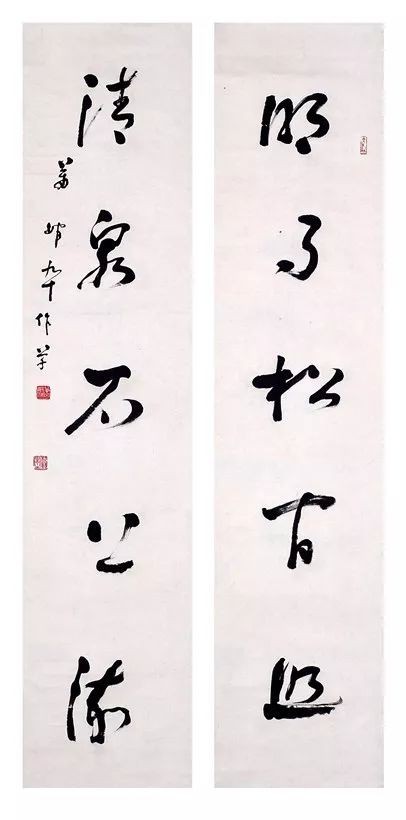 明月松間照
清泉石上流
九十作草